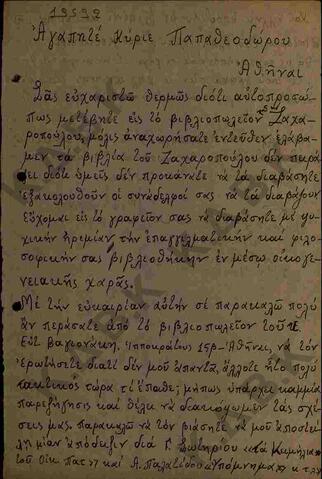 19592
Ἀγαπητέ Κύριε Παπαθεοδώρου
Ἀθῆναι
Σᾶς εὐχαριστῶ θερμῶς διότι αὐτοπροσώ-
πως μετέβητε εἰς τό βιβλιοπωλεῖον Ζαχα-
ροπούλου, μόλις ἀναχωρήσατε ἐντεῦθεν ἐλάβα-
μεν τά βιβλία τοῦ Ζαχαροπούλου δέν πειρά-
ζει διότι ὑμεῖς δέν προκάνατε νά τά διαβάσητε
ἐξακολουθοῦν οἱ συνάδελφοί σας νά τά διαβάζουν
εὔχομαι εἰς τό γραφεῖον σας νά διαβάσητε μέ ψυ-
χικήν ἠρεμίαν τήν ἐπαγγελματικήν καί φιλο-
σοφικήν σας βιβλιοθήκην ἐν μέσω οἰκογε-
νειακῆς χαρᾶς.
Μέ τήν εὐκαιρίαν αὐτήν σέ παρακαλῶ πολύ
ἄν περάσατε ἀπό τό βιβλιοπωλεῖον τοῦ κ
Εὐλ Βαγιονάκη, Ἱπποκράτους 15β - Ἀθῆναι, νά τόν
ἐρωτήσητε διατί δέν μοῦ ἀπαντᾶ, ἄλλοτε ἦτο πολύ
τακτικός τώρα τί ἔπαθε; μήπως ὑπάρχει καμμία
παρεξήγησις καί θέλει νά διακόψωμεν τάς σχέ-
σεις μας, παρακαλῶ νά τόν βιάσητε νά μοῦ ἀποστεί-
λη μίαν ἀπόδειξιν διά Γ. Σωτηρίου «τά Κειμήλια
τοῦ Οἰκ Πατ» καί Α. Παλατίδου «Ὑπόμνημα» κ τ λ